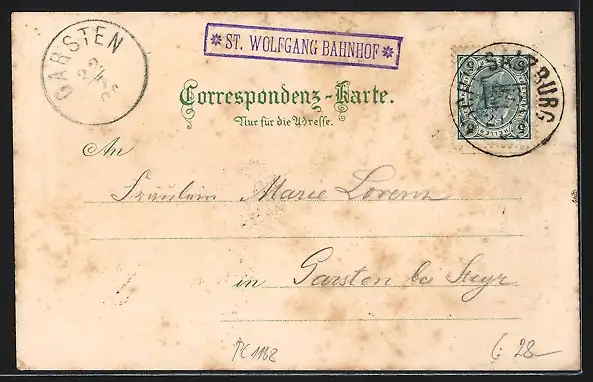 GARSTEN
* ST. WOLFGANG BAHNHOF *
SALZBURG
Correspondenz-Karte.
Nur für die Adresse.
An
Fräulein Marie Lorenz
in Garsten bei Steyr
PC1168
28-